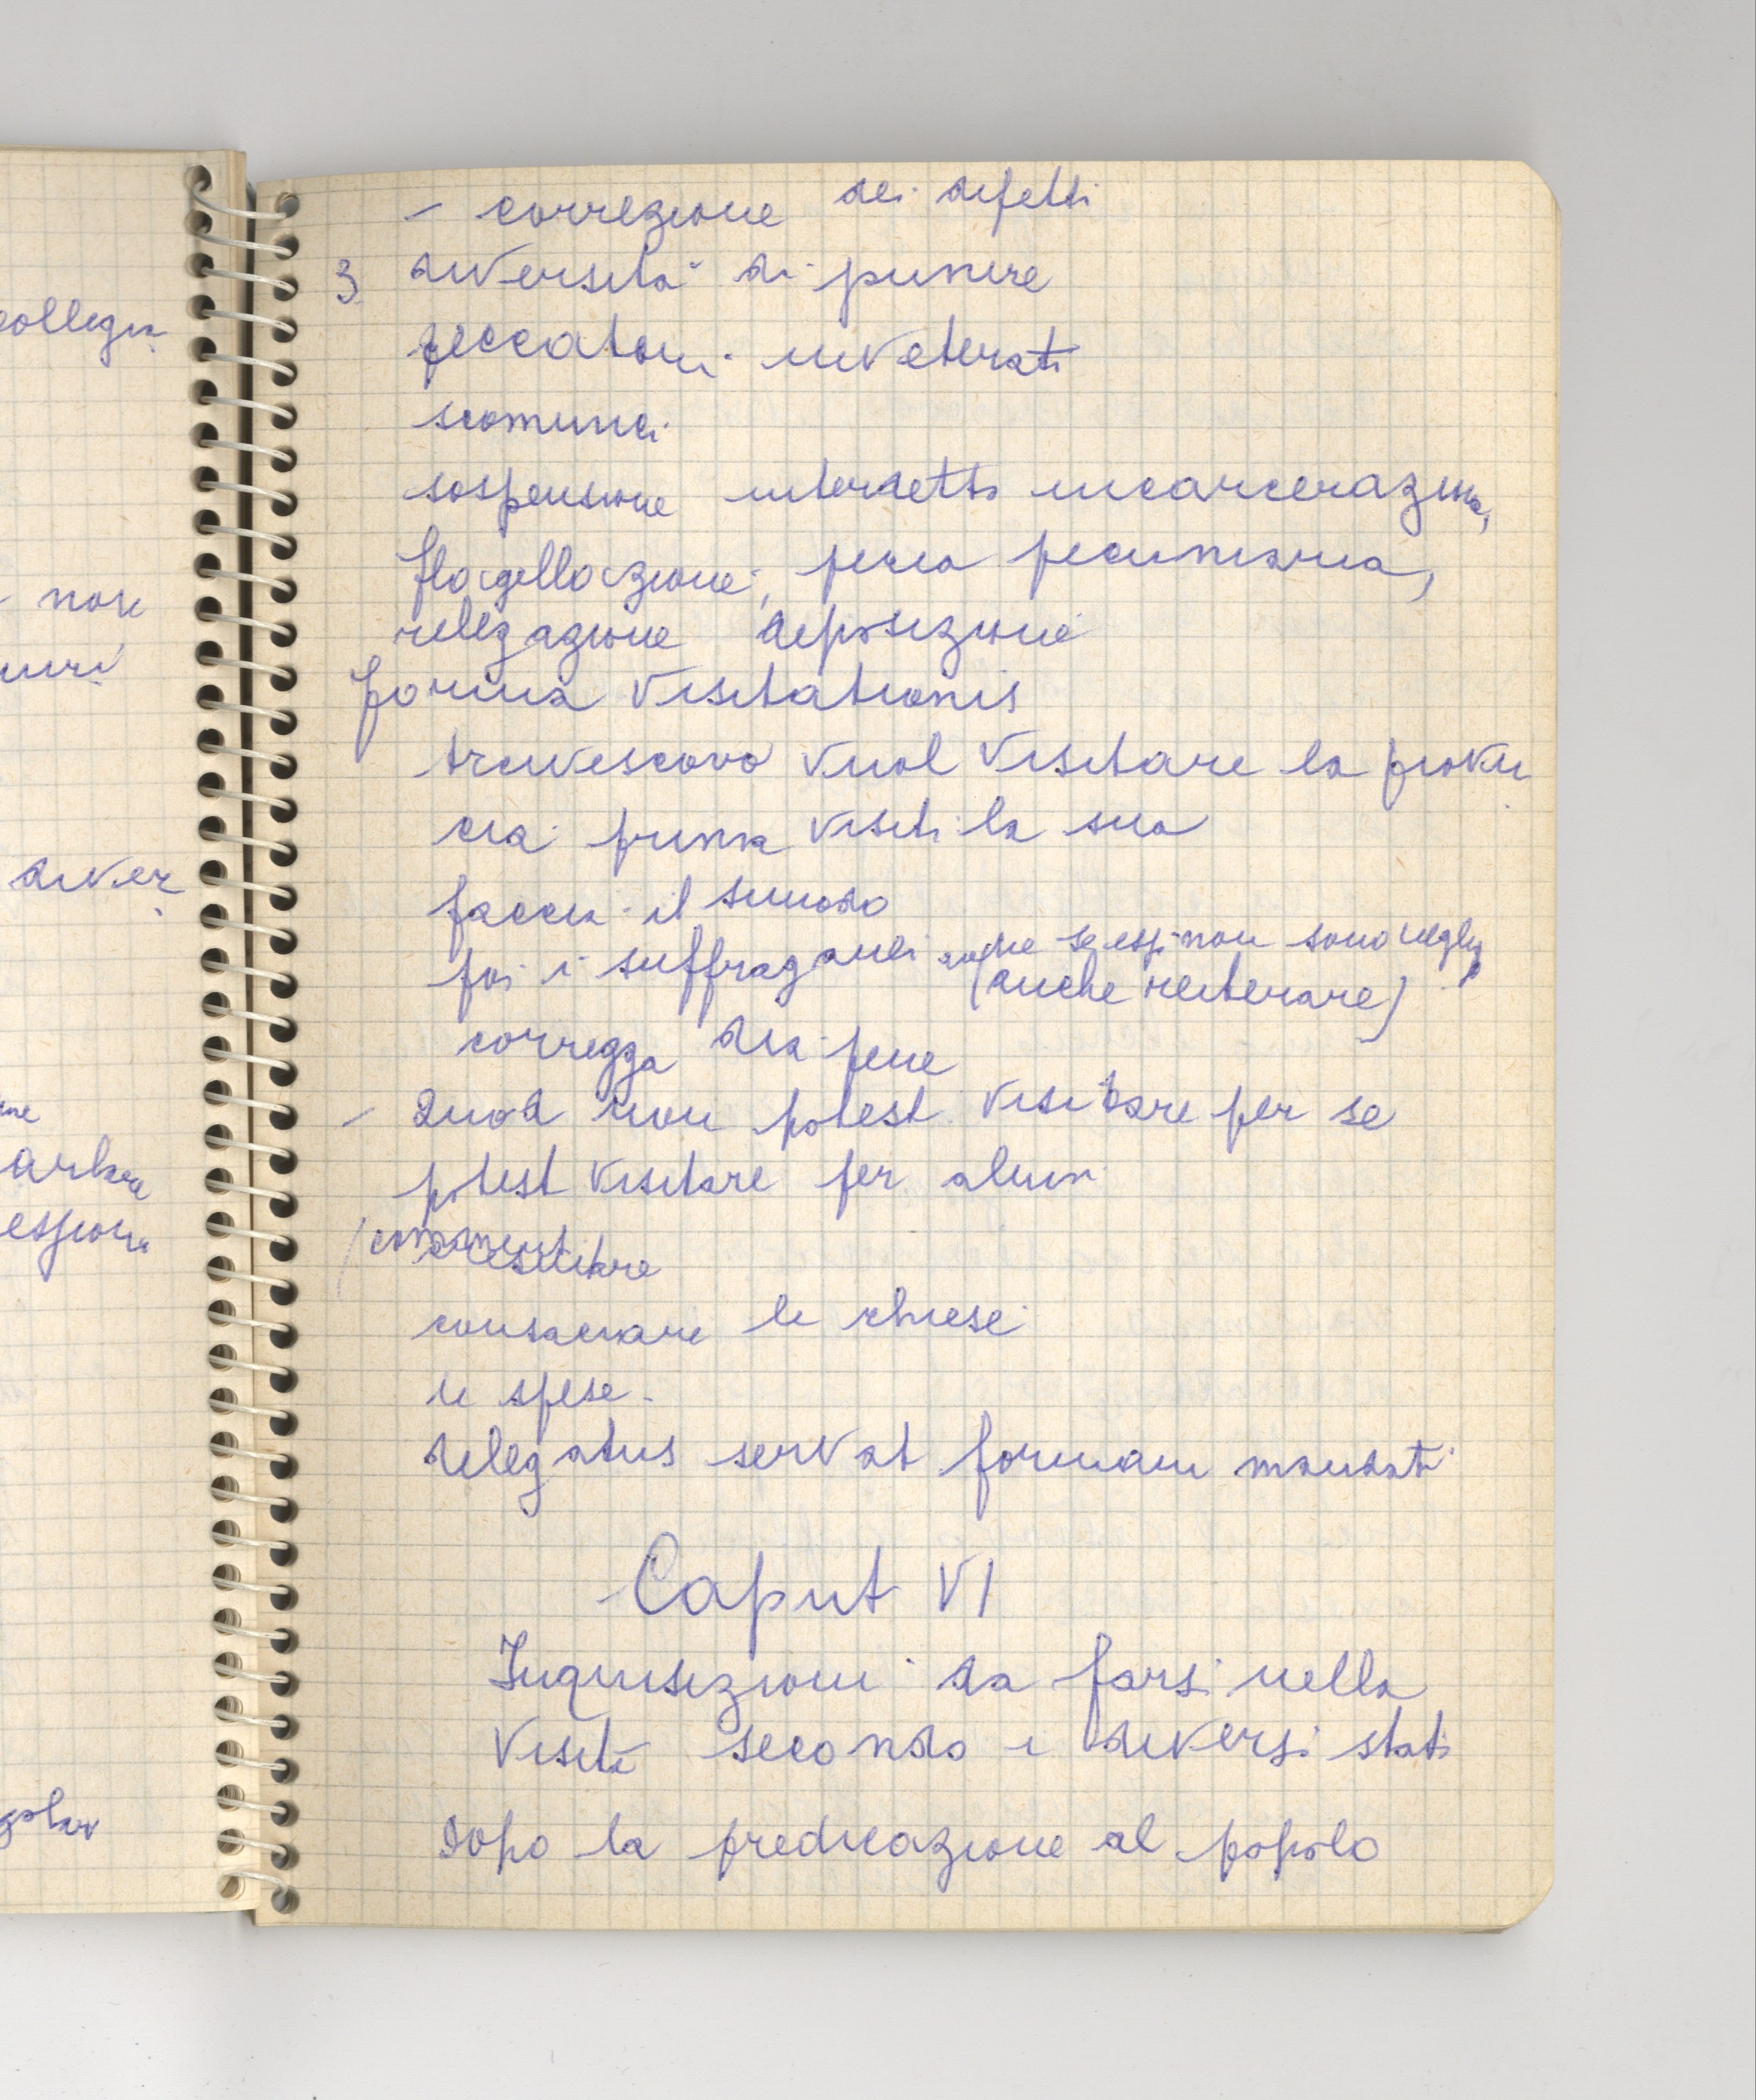 - correzione dei difetti
3 diversità di punire
peccatori inveterati
scomunici
sospensione interdetto incarcerazione,
flagellazione, pena pecuniaria,
relegazione deposizione
forma visitationis
arcivescovo vuol visitare la provin
cia prima visiti la sua
faccia il sinodo
poi i suffraganei anche se essi non sono negligenti
(anche reiterare)
corregga dia pene
- Quod non potest visitare per se
potest visitare per alium
visitare
consacrare le chiese
le spese -
delegatus servat formam mandati
Caput VI
Inquisizioni da farsi nella
visita secondo i diversi stati
Dopo la predicazione al popolo
collegia
non
diver